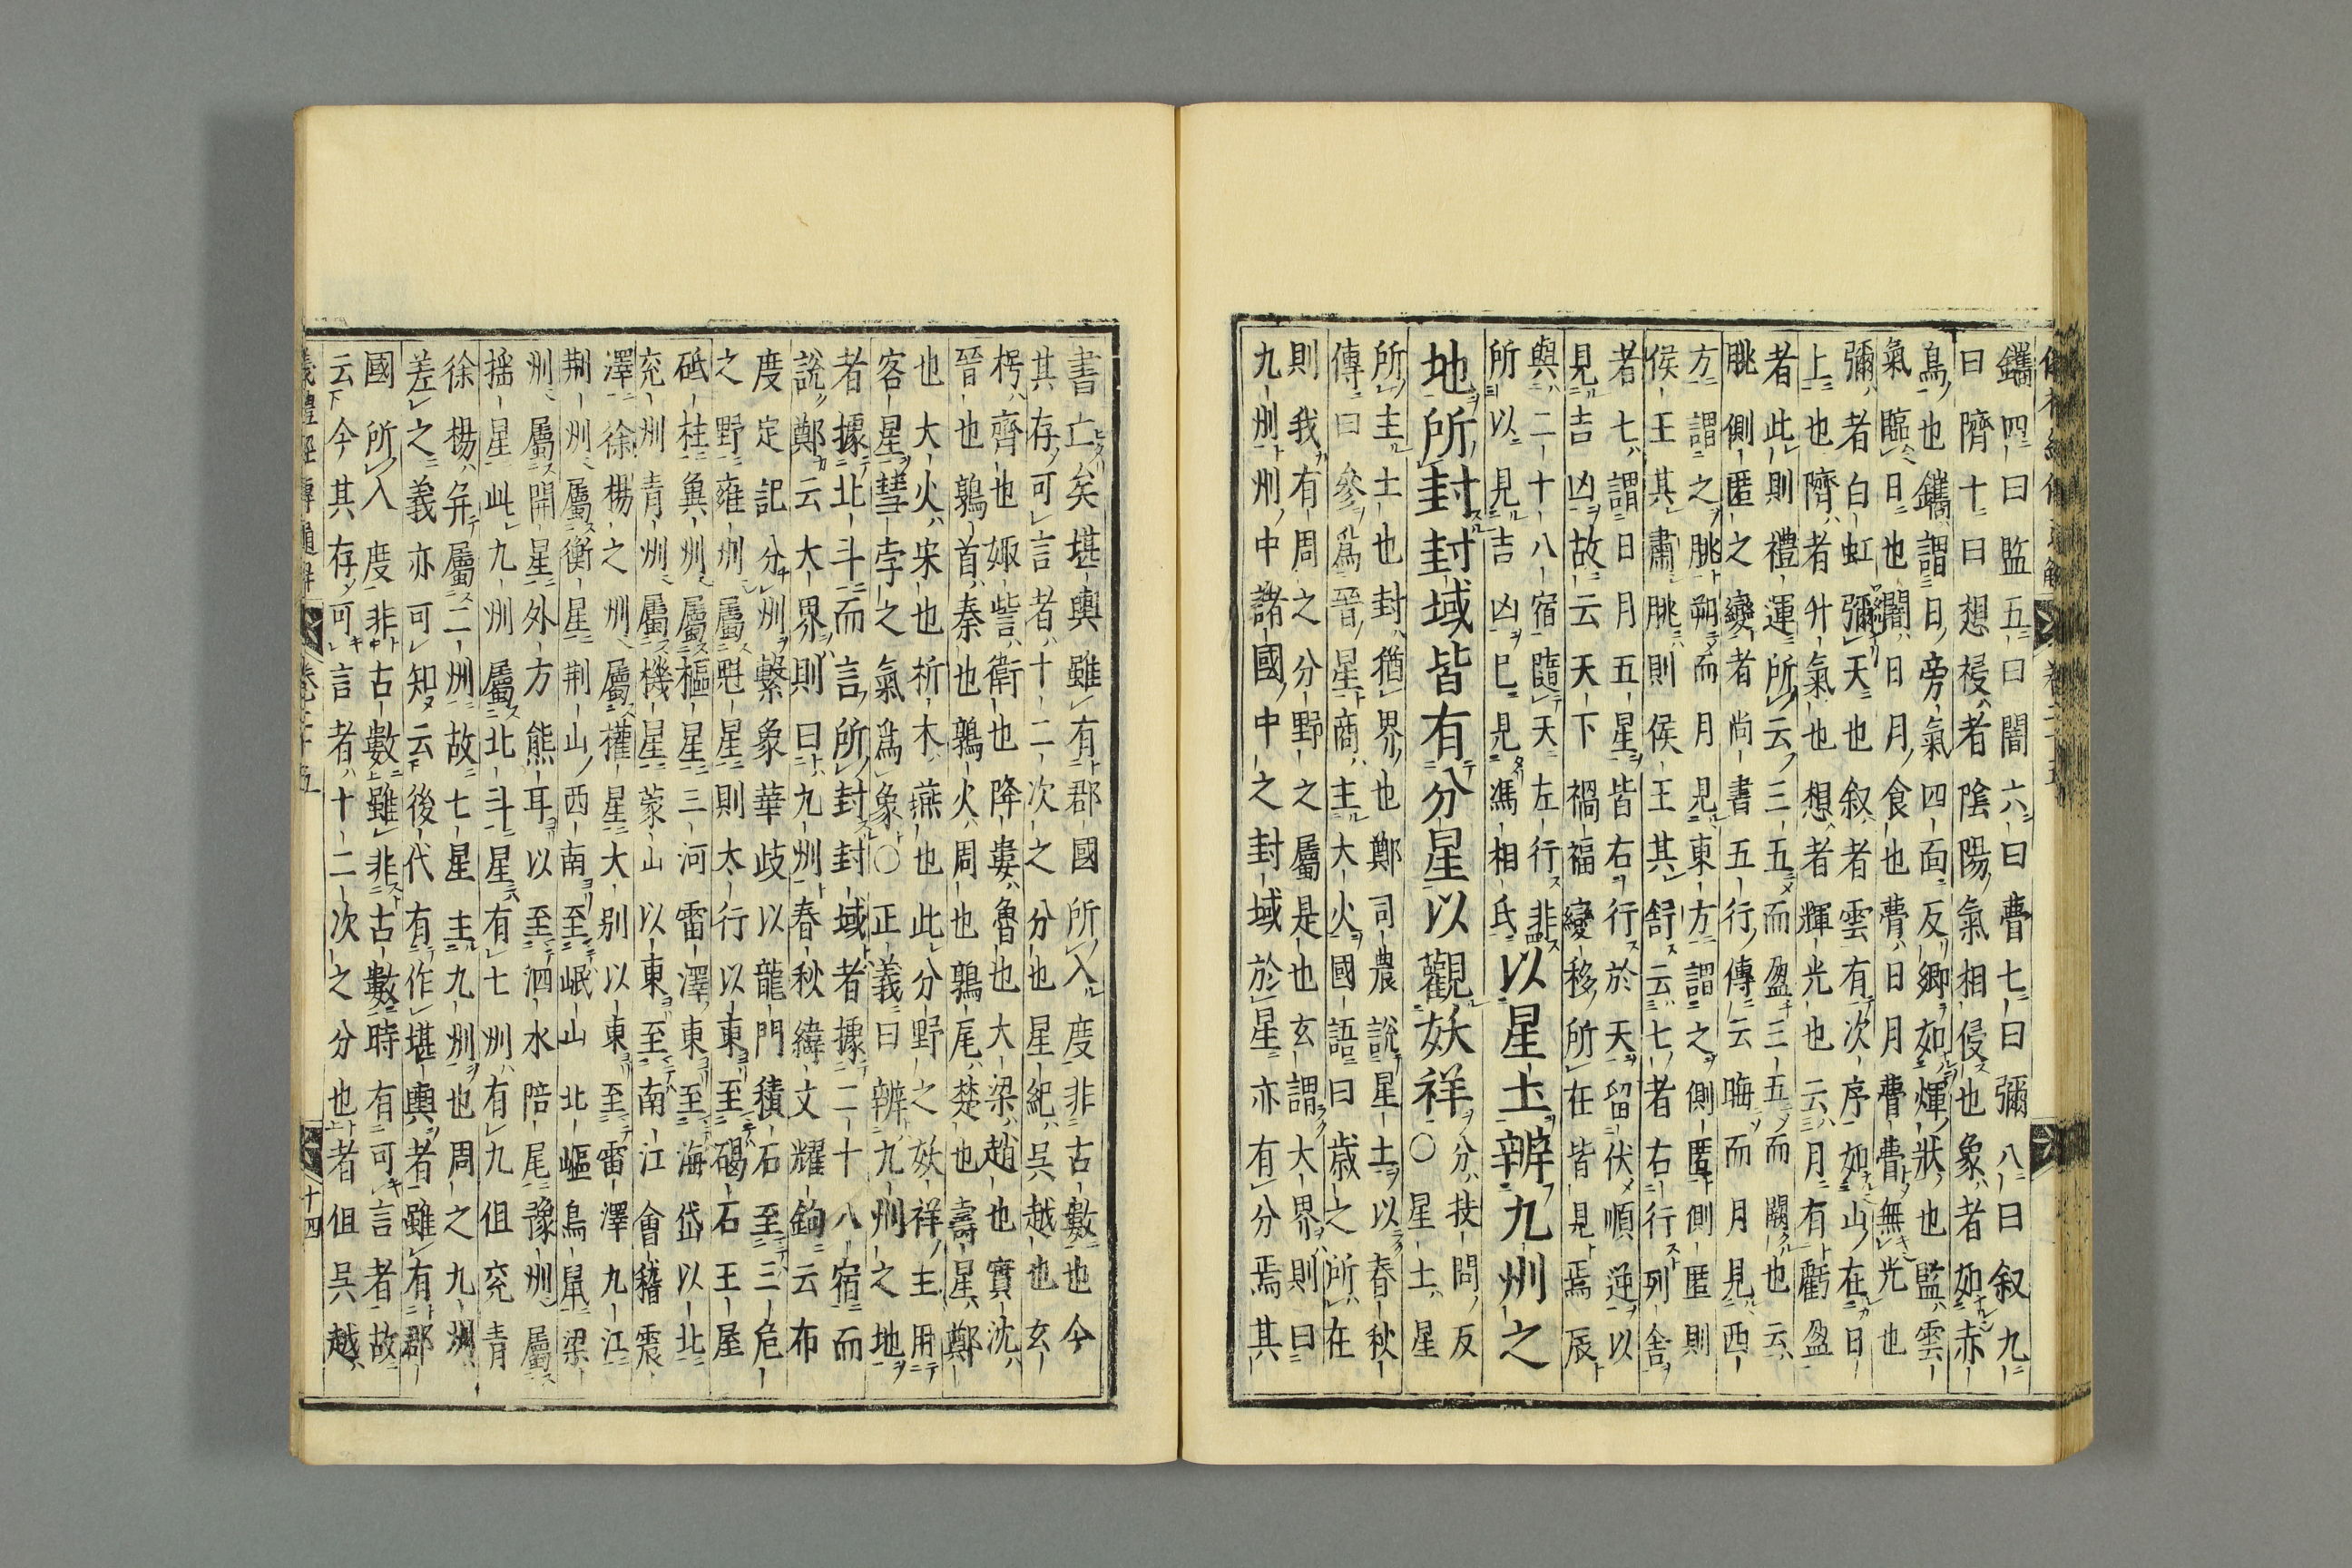 鑴四曰監五曰闇六曰瞢七曰彌八曰叙九
曰隮十曰想祲者陰陽氣相侵也象者如赤
鳥也鑴謂日旁氣四面反郷如煇狀也監雲
氣臨日也闇日月食也瞢日月瞢瞢無光也
彌者白虹彌天也叙者雲有次序如山在日
上也隮者升氣也想者輝光也云月有虧盈
者此則禮運所云三五而盈三五而闕也云
朓側匿之變者尚書五行傳云晦而月見西
方謂之朓朔而月見東方謂之側匿側匿則
侯王其肅朓則侯王其舒云七者右行列舍
者七謂日月五星皆右行於天留伏順逆以
見吉凶故云天下禍福變移所在皆見焉辰
與二十八宿隨天左行非
所以見吉凶已見馮相氏以星土辨九州之
地所封封域皆有分星以觀妖祥分扶問反
○星土星
所主土也封猶界也鄭司農說星土以春秋
傳曰參爲晉星商主大火國語曰歲之所在
則我有周之分野之屬是也玄謂大界則曰
九州州中諸國中之封域於星亦有分焉其
書亡矣堪輿雖有郡國所入度非古數也今
其存可言者十二次之分也星紀吳越也玄
枵齊也娵訾衛也降婁魯也大梁趙也實沈
晉也鶉首秦也鶉火周也鶉尾楚也壽星鄭
也大火宋也析木燕也此分野之妖祥主用
客星彗孛之氣爲象○正義曰辨九州之地
者據北斗而言所封封域者據二十八宿而
說鄭云大界則曰九州春秋緯文耀鉤云布
度定記分州繫象華歧以龍門積石至三危
之野雍州屬魁星則太行以東至碣石王屋
砥柱冀州屬樞星三河雷澤東至海岱以北
兗州青州屬機星蒙山以東至南江會稽震
澤徐楊之州屬權星大別以東至雷澤九江
荆州屬衡星荆山西南至岷山北嶇鳥鼠梁
州屬開星外方熊耳以至泗水陪尾豫州屬
搖星此九州屬北斗星有七州有九但兗青
徐楊并屬二州故七星主九州也周之九州
差之義亦可知云後代有作堪輿者雖有郡
國所入度非古數雖非古數時有可言者故
云今其存可言者十二次之分也者但吳越
十四